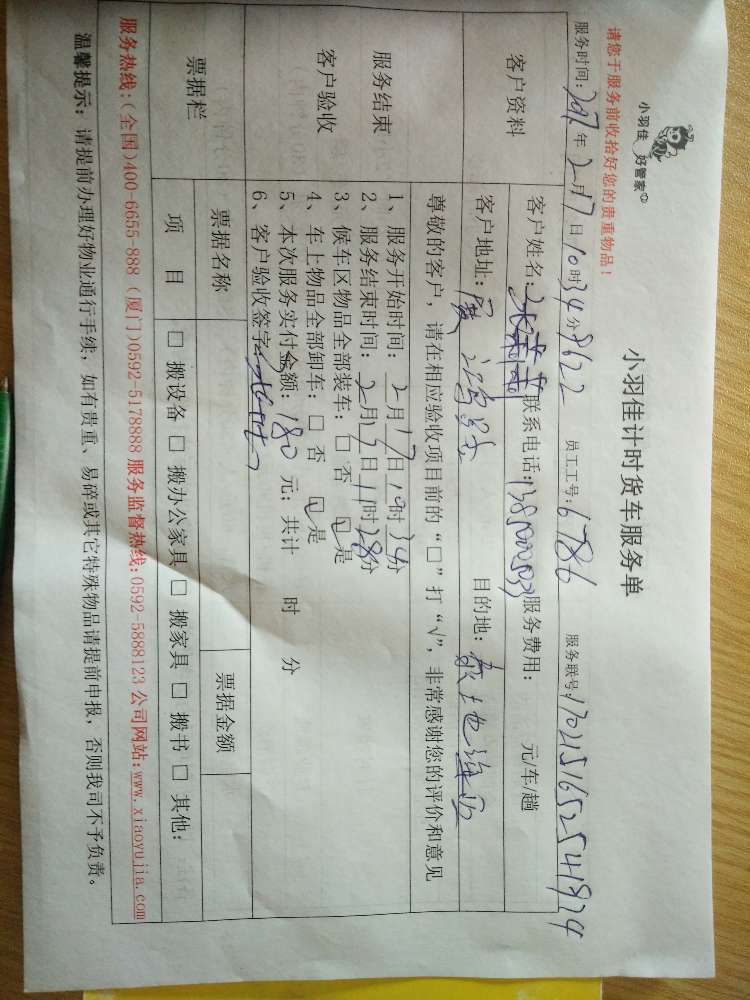 小羽佳 好管家
小羽佳计时货车服务单
请您于服务前收拾好您的贵重物品！
服务时间：2017年2月17日10时34分 员工工号：6786 服务联号：17021516525541924
客户资料
客户姓名： 联系电话： 服务费用： 元/车/趟
客户地址： 目的地：
尊敬的客户，请在相应验收项目前的“□”打“√”，非常感谢您的评价和意见
服务结束
客户验收
1、服务开始时间：2月17日10时34分
2、服务结束时间：2月17日11时28分
3、候车区物品全部装车：□ 否 □ 是
4、车上物品全部卸车：□ 否 □ 是
5、本次服务实付金额：180 元；共计 时 分
6、客户验收签字：
票据栏
票据名称 票据金额
项 目 □ 搬设备 □ 搬办公家具 □ 搬家具 □ 搬书 □ 其他：
服务热线：（全国)400-6655-888 （厦门)0592-5178888 服务监督热线：0592-5888123 公司网站：www.xiaoyujia.com
温馨提示：请提前办理好物业通行手续，如有贵重、易碎或其它特殊物品请提前申报，否则我司不予负责。